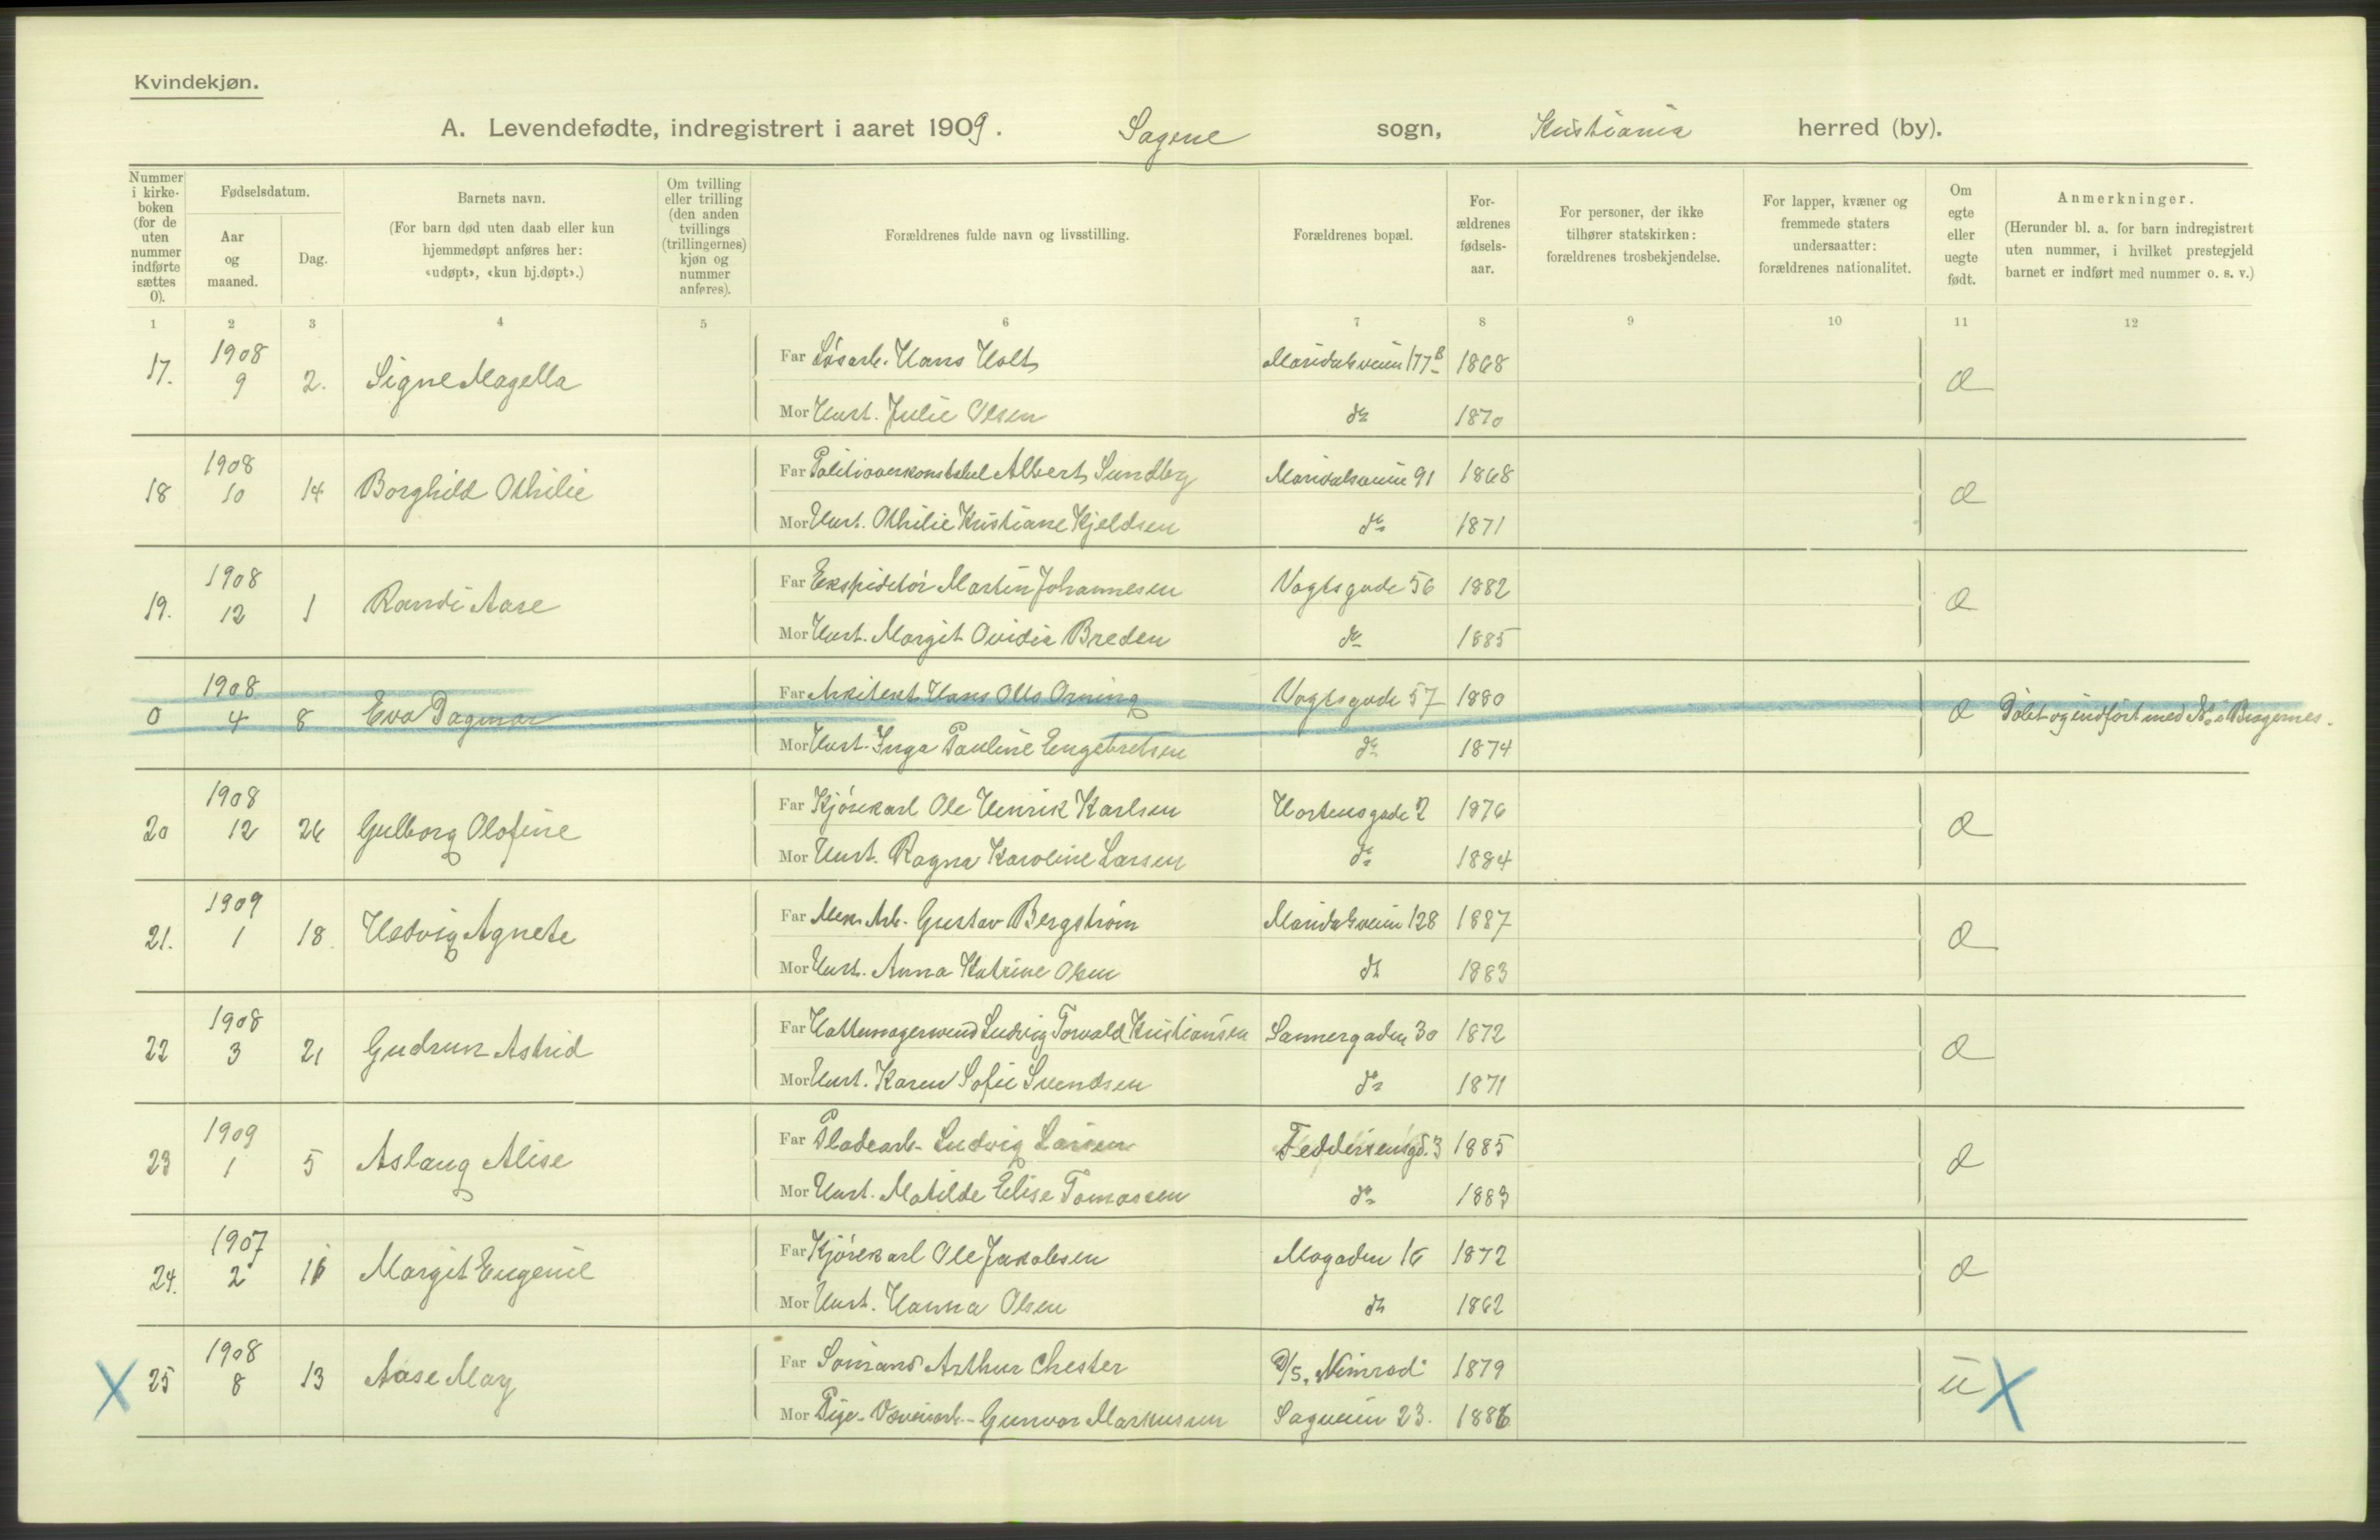 Kvindekjøn.
A. Levendefødte, indregistrert i aaret 1909. Sagene sogn, Kristiania herred (by).
Nummer i kirke-boken (for de uten nummer indførte sættes 0).
Fødselsdatum.
Aar og maaned.
Dag.
Barnets navn.
(For barn død uten daab eller kun hjemmedøpt anføres her: «udøpt», «kun hj.døpt».)
Om tvilling eller trilling (den anden tvillings (trillingernes) kjøn og nummer anføres).
Forældrenes fulde navn og livsstilling.
Forældrenes bopæl.
For-ældrenes fødsels-aar.
For personer, der ikke tilhører statskirken: forældrenes trosbekjendelse.
For lapper, kvæner og fremmede staters undersaatter: forældrenes nationalitet.
Om egte eller uegte født.
Anmerkninger.
(Herunder bl. a. for barn indregistrert uten nummer, i hvilket prestegjeld barnet er indført med nummer o. s. v.)
1 2 3 4 5 6 7 8 9 10 11 12
17. 1908 9 2. Signe Magella Far Løsarb. Hans Holt Maridalsveien 177B 1868
Mor Hust. Julie Olsen do 1870
18 1908 10 14 Borghild Othilie Far Politioverkonstabel Albert Sundby Maridalsveien 91 1868
Mor Hust. Othilie Kristiane Kjeldsen do 1871
19. 1908 12 1 Randi Aase Far Ekspeditør Martin Johannesen Vogtsgade 56 1882
Mor Hust. Margit Ovidia Breden do 1885
0 1908 4 8 Eva Dagmar Far Arkitekt Hans Orning Vogtsgade 57 1880 Døbt og indført med No i Bragernes.
Mor Hust. Inga Pauline Engebretsen do 1874
20 1908 12 26 Gulborg Olofine Far Kjørekarl Ole Henrik Karlsen Hortensgade 2 1876
Mor Hust. Ragna Karoline Larsen do 1884
21. 1909 1 18 Hedvig Agnete Far Mek. Arb. Gustav Bergstrøm Maridalsveien 128 1887
Mor Hust. Anna Katrine Olsen do 1883
22 1908 3 21 Gudrun Astrid Far Hattemagersvend Ludvig Torvald Kristiansen Sannergaden 30 1872
Mor Hust. Karen Sofie Svendsen do 1871
23 1909 1 5 Aslaug Alise Far Pladearb. Ludvig Larsen Feddersensgd. 3 1885
Mor Hust. Matilde Elise Tomassen do 1883
24. 1907 2 Margit Eugenie Far Kjørekarl Ole Jakobsen Mogaden 16 1872
Mor Hust. Hanna Olsen do 1862
X 25 1908 8 13 Aase May Far Sømand Arthur Chester D/S. "Nimrod" 1879 u X
Mor Pige - Væveriarb. - Gunvor Markussen Sagveien 23. 1886